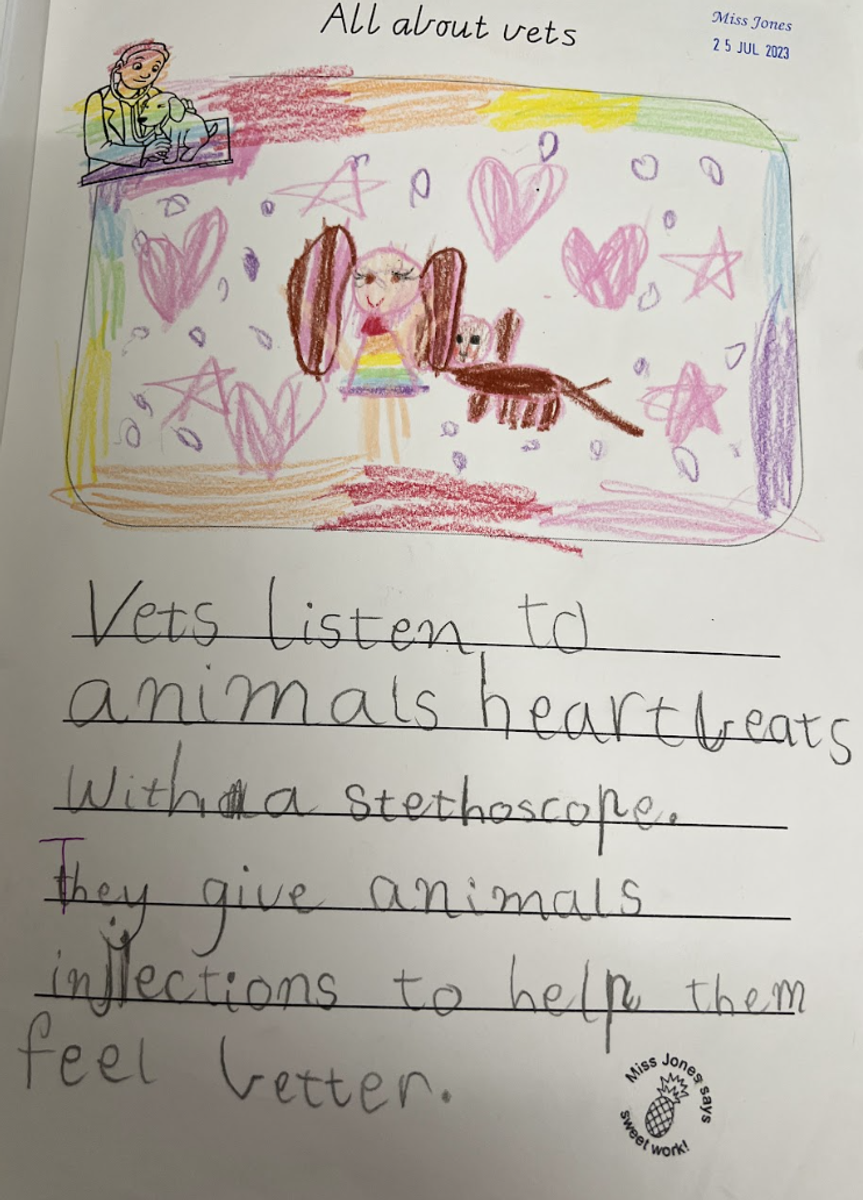 All about vets
Miss Jones
25 JUL 2023
Vets listen to
animals heartbeats
With a stethoscope.
They give animals
injections to help them
feel better.
Miss Jones says
sweet work!